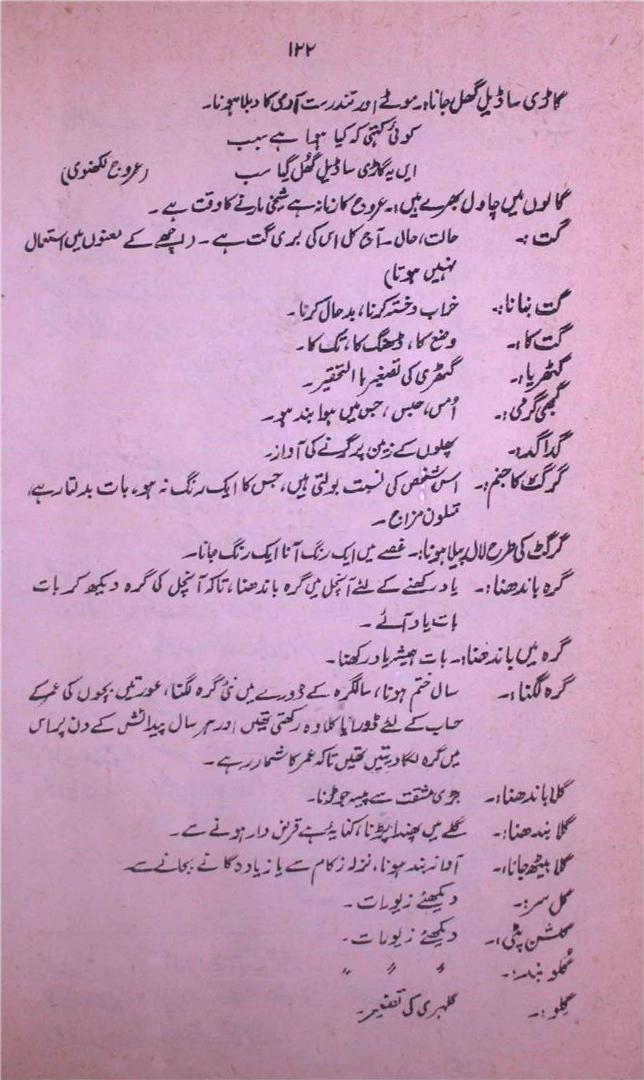 ۱۲۲
گاڑی سا ڈیل گھل جانا:۔ موٹے اور تندرست آدمی کا دبلا ہونا۔
کوئی کہتی کہ کیا ہوا ہے سبب
ایں یہ گاڑی سا ڈیل گھل گیا سب (عروج لکھنوی)
گالوں میں چاول بھرے ہیں:۔ عروج کا زمانہ ہے شیخی مارنے کا وقت ہے۔
گت:۔ حالت، حال۔ آج کل اس کی بری گت ہے۔ (اچھے کے معنوں میں استعمال
نہیں ہوتا)
گت بنانا:۔ خراب و خستہ کرنا، بدحال کرنا۔
گت کا:۔ وضع کا، ڈھنگ کا، تک کا۔
گٹھریا:۔ گٹھری کی تصغیر با التحقیر۔
گبھی گرمی:۔ اُمس، حبس، جس میں ہوا بند ہو۔
گداگد:۔ پھلوں کے زمین پر گرنے کی آواز۔
گرگٹ کا جنم:۔ اس شخص کی نسبت بولتی ہیں، جس کا ایک رنگ نہ ہو، بات بدلتا رہے،
متلون مزاج۔
گرگٹ کی طرح لال پیلا ہونا:۔ غصے میں ایک رنگ آنا ایک رنگ جانا۔
گرہ باندھنا:۔ یاد رکھنے کے لئے آنچل میں گرہ باندھنا، تاکہ آنچل کی گرہ دیکھ کر بات
بات یاد آئے۔
گرہ میں باندھنا:۔ بات ہمیشہ یاد رکھنا۔
گرہ لگنا:۔ سال ختم ہونا، سالگرہ کے ڈورے میں نئی گرہ لگنا، عورتیں بچوں کی عمر کے
حساب کے لئے ڈورا یا کلاوہ رکھتی تھیں اور ہر سال پیدائش کے دن پر اس
میں گرہ لگا دیتیں تھیں تاکہ عمر کا شمار رہے۔
گلا باندھنا:۔ بڑی مشقت سے پیسہ جوڑنا۔
گلا بندھنا:۔ گلے میں پھندا پڑنا، کنایہ ہے قرض دار ہونے سے۔
گلا بیٹھ جانا:۔ آواز بند ہونا، نزلہ زکام سے یا زیادہ گانے بجانے سے۔
گل سر:۔ دیکھئے زیورات۔
گلشن پٹی:۔ دیکھئے زیورات۔
گلو بند:۔ " " "
گلو:۔ گلہری کی تصغیر۔